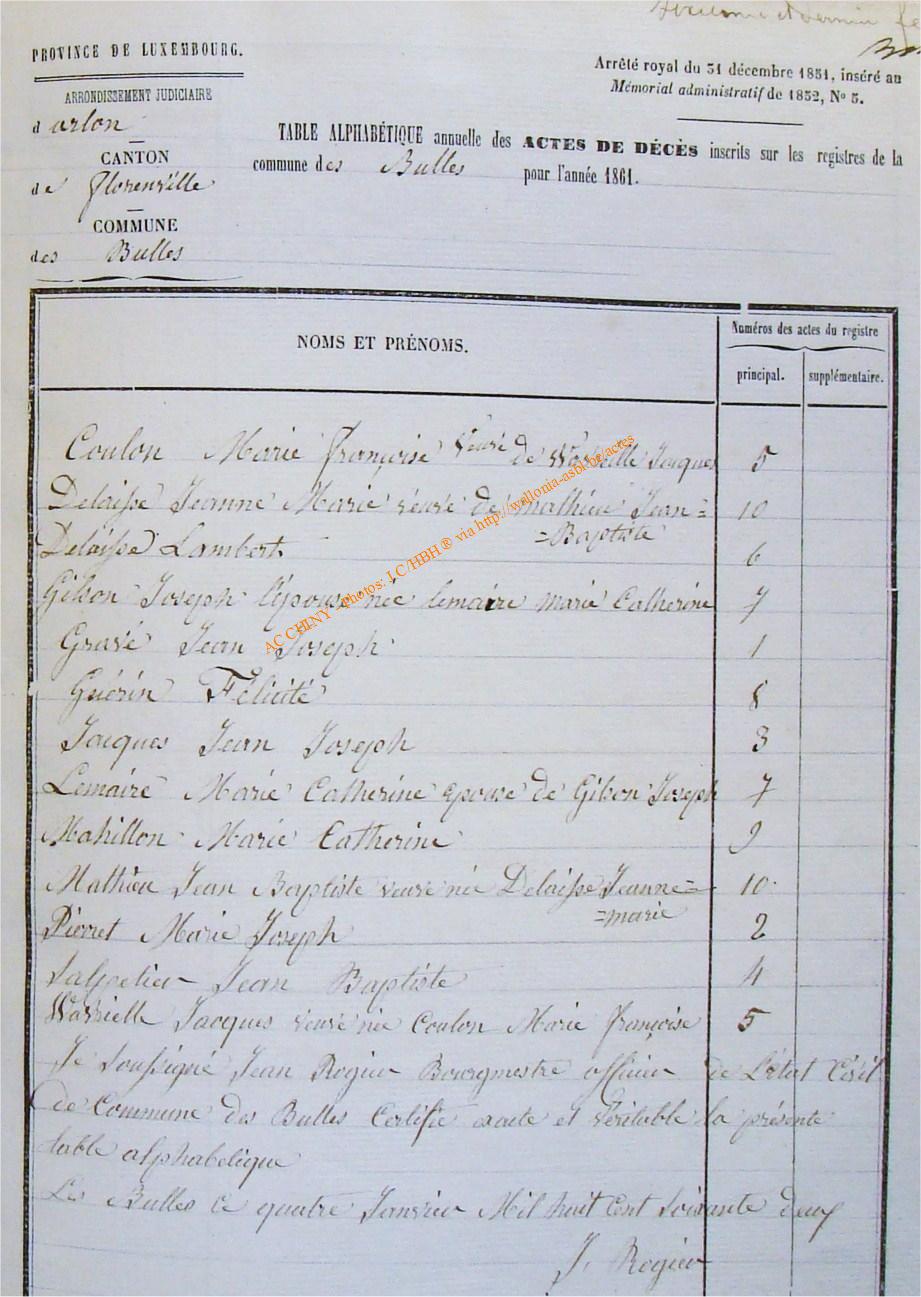 PROVINCE DE LUXEMBOURG.
ARRONDISSEMENT JUDICIAIRE
d'arlon
CANTON
de florenville
COMMUNE
des Bulles
Arrêté royal du 31 décembre 1851, inséré au
Mémorial administratif de 1852, No 5.
TABLE ALPHABÉTIQUE annuelle des ACTES DE DÉCÈS inscrits sur les registres de la
commune des Bulles pour l'année 1861.
NOMS ET PRÉNOMS.
Numéros des actes du registre
principal. supplémentaire.
Coulon Marie françoise veuve de Warzielle Jacques 5
Delaisse Jeanne Marie veuve de mathieu Jean= 10
=Baptiste
Delaisse Lambert 6
Gibon Joseph l'épouse née lemaire marie Catherine 7
Gravé Jean Joseph 1
Guérin Félicité 8
Jacques Jean Joseph 3
Lemaire Marie Catherine epouse de Gibon Joseph 7
Mahillon Marie Catherine 9
Mathieu Jean Baptiste veuve née Delaisse Jeanne= 10
=marie
Pierret Marie Joseph 2
Jean Baptiste 4
Jacques veuve née Coulon Marie françoise 5
Je soussigné Jean Rogier Bourgmestre officier de L'état Civil
de Commune des Bulles Certifie exacte et Véritable la présente
table alphabetique
Les Bulles ce quatre Janvier Mil huit Cent Soixante deux
J. Rogier
AC CHINY - Photos: J.C/HBH ® via http://wallonia-asbl.be/actes